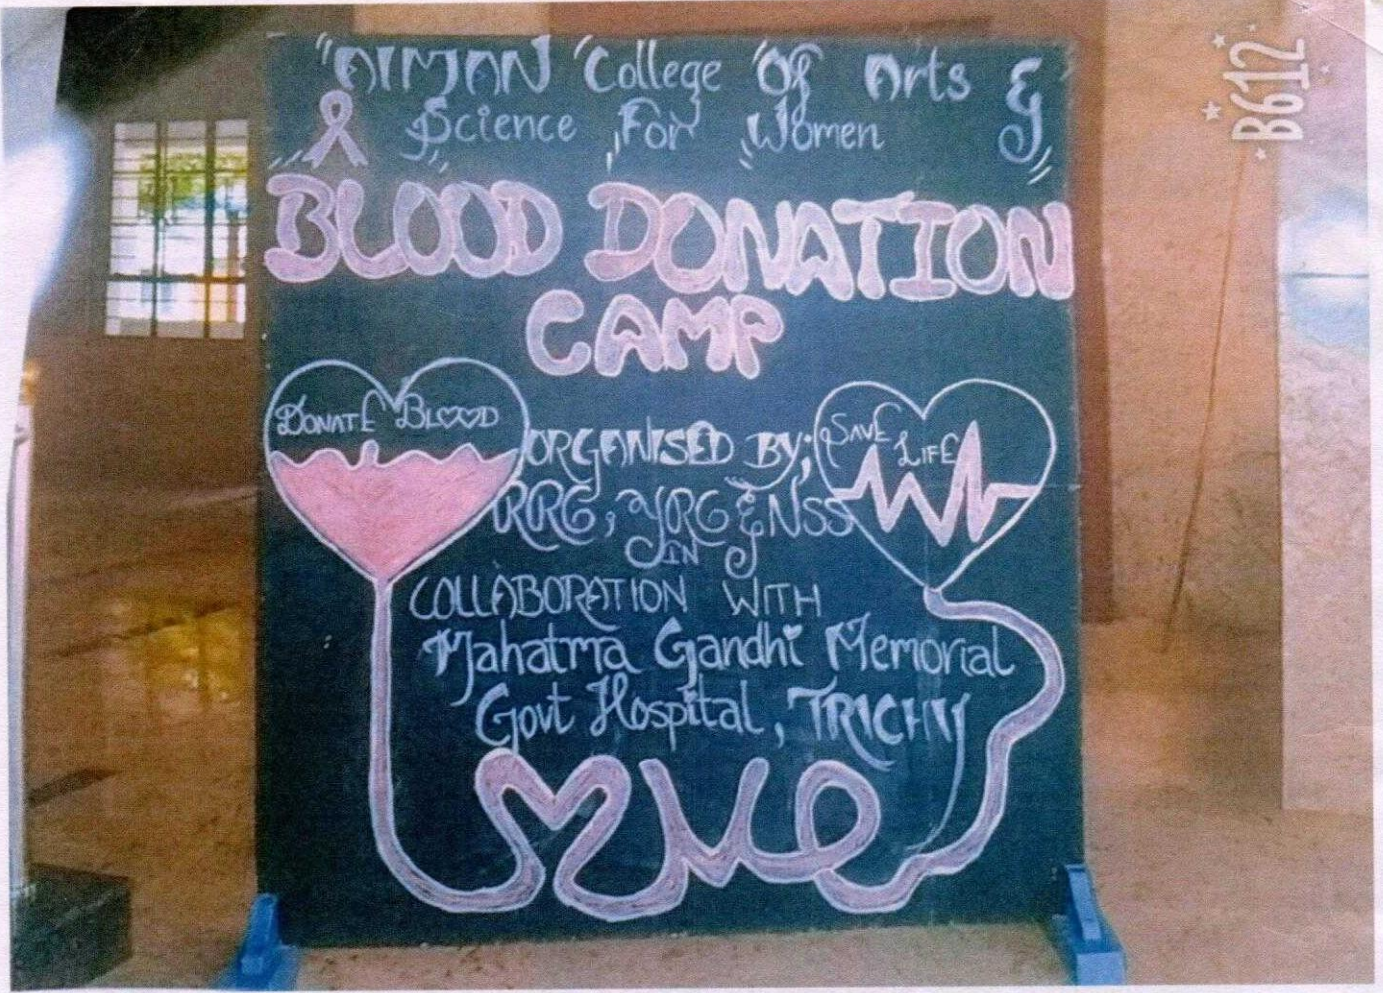 "AIMAN College Of Arts &
Science For Women"
BLOOD DONATION
CAMP
DONATE BLOOD
SAVE LIFE
ORGANISED BY;
RRC, YRC & NSS
IN
COLLABORATION WITH
Mahatma Gandhi Memorial
Govt Hospital, TRICHY
B612